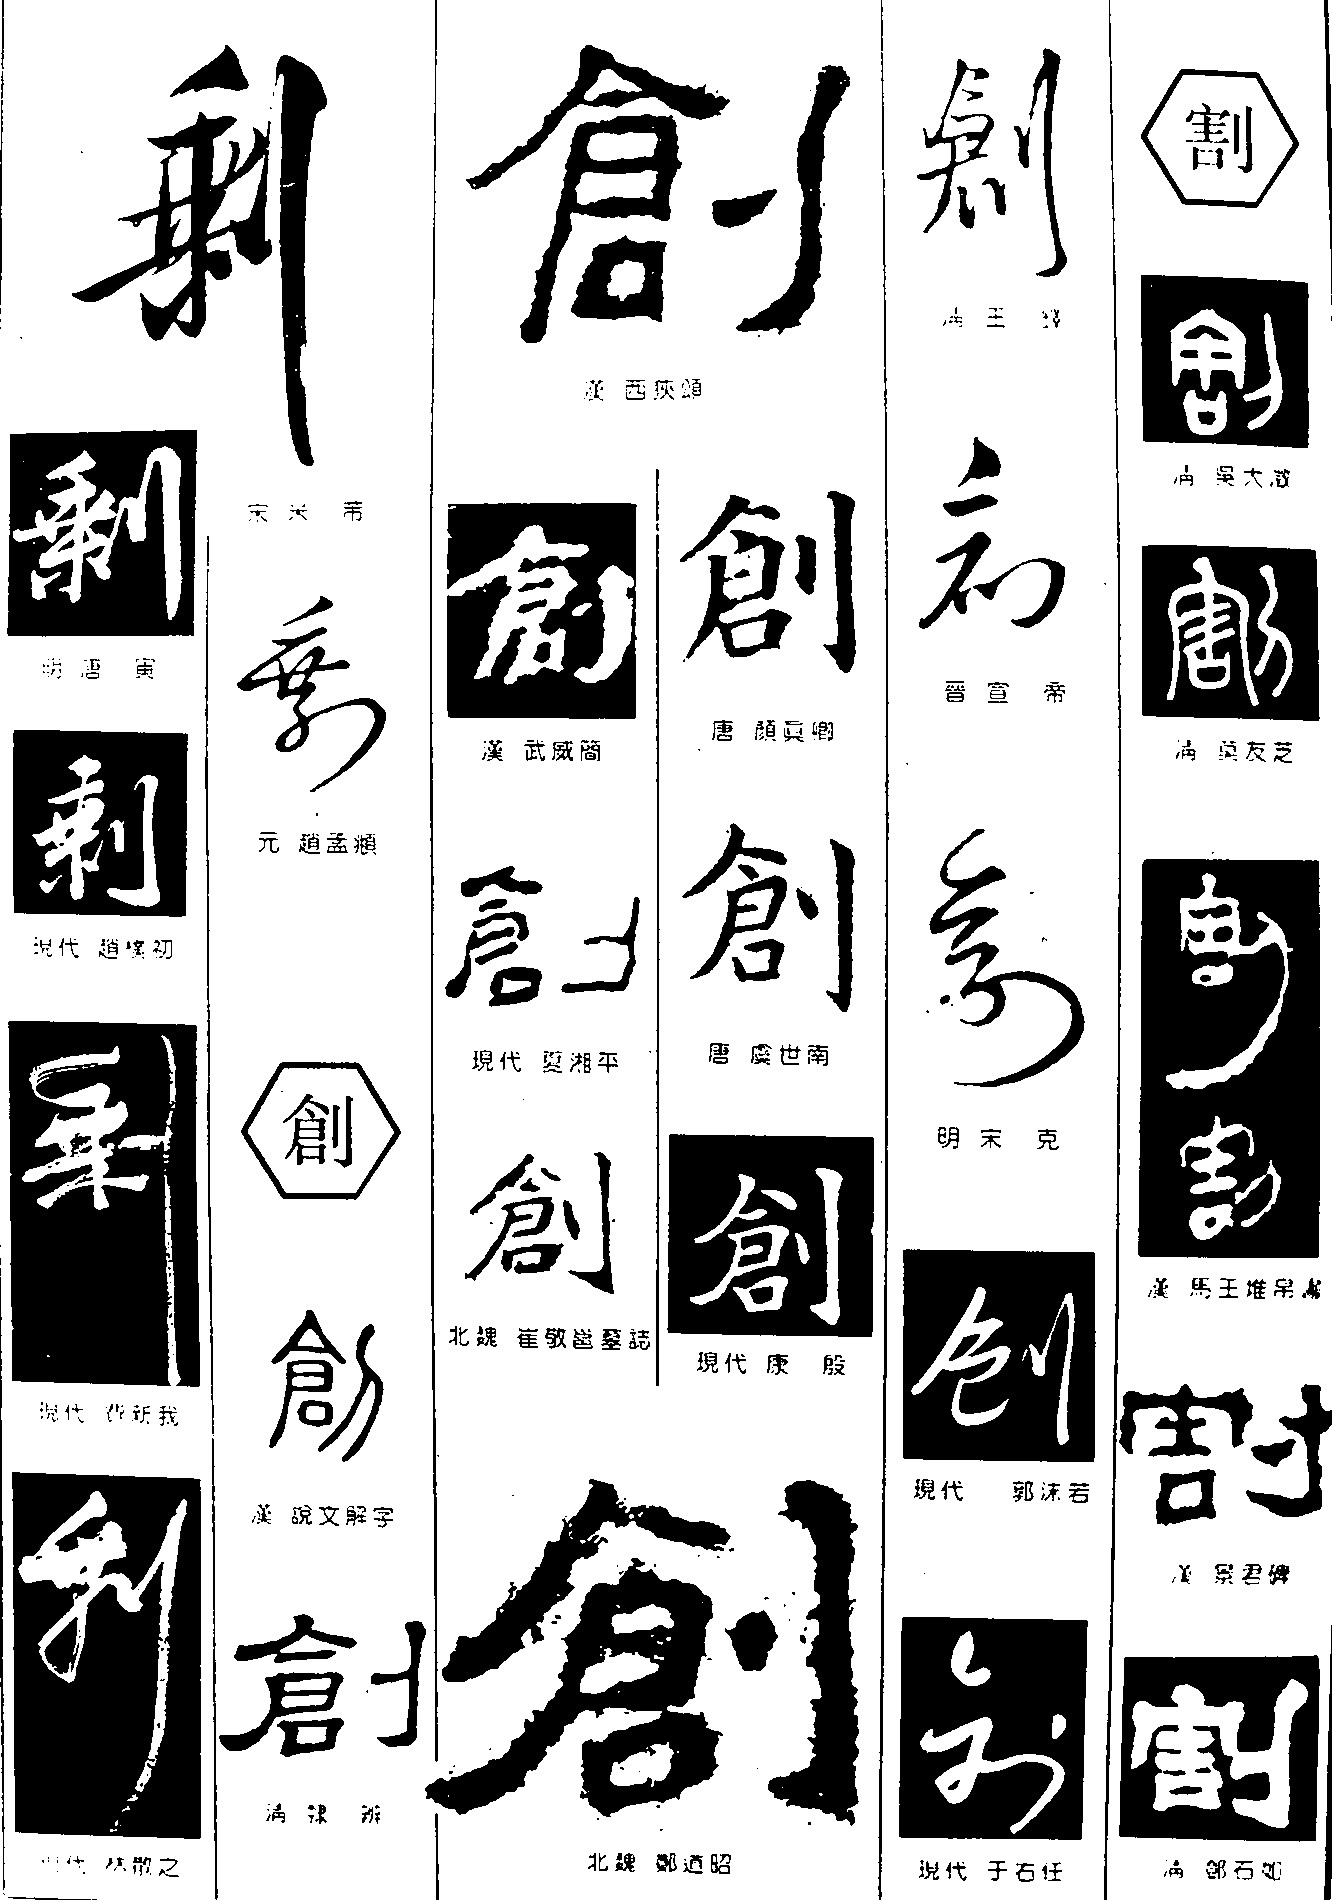 剩
宋 米 芾
剩
明 唐 寅
剩
元 趙孟頫
剩
現代 趙樸初
剩
現代 費新我
剩
現代 林散之
創
創
漢 說文解字
創
清 隸 辨
創
漢 西狹頌
創
漢 武威簡
創
現代 夏湘平
創
北魏 崔敬邕墓誌
創
唐 顏眞卿
創
唐 虞世南
創
現代 康 殷
創
北魏 鄭道昭
創
清 王 鐸
創
晉 宣 帝
創
明 宋 克
創
現代 郭沫若
創
現代 于右任
割
割
清 吳大澂
割
清 莫友芝
割
割
漢 馬王堆帛書
割
漢 景君碑
割
清 鄧石如